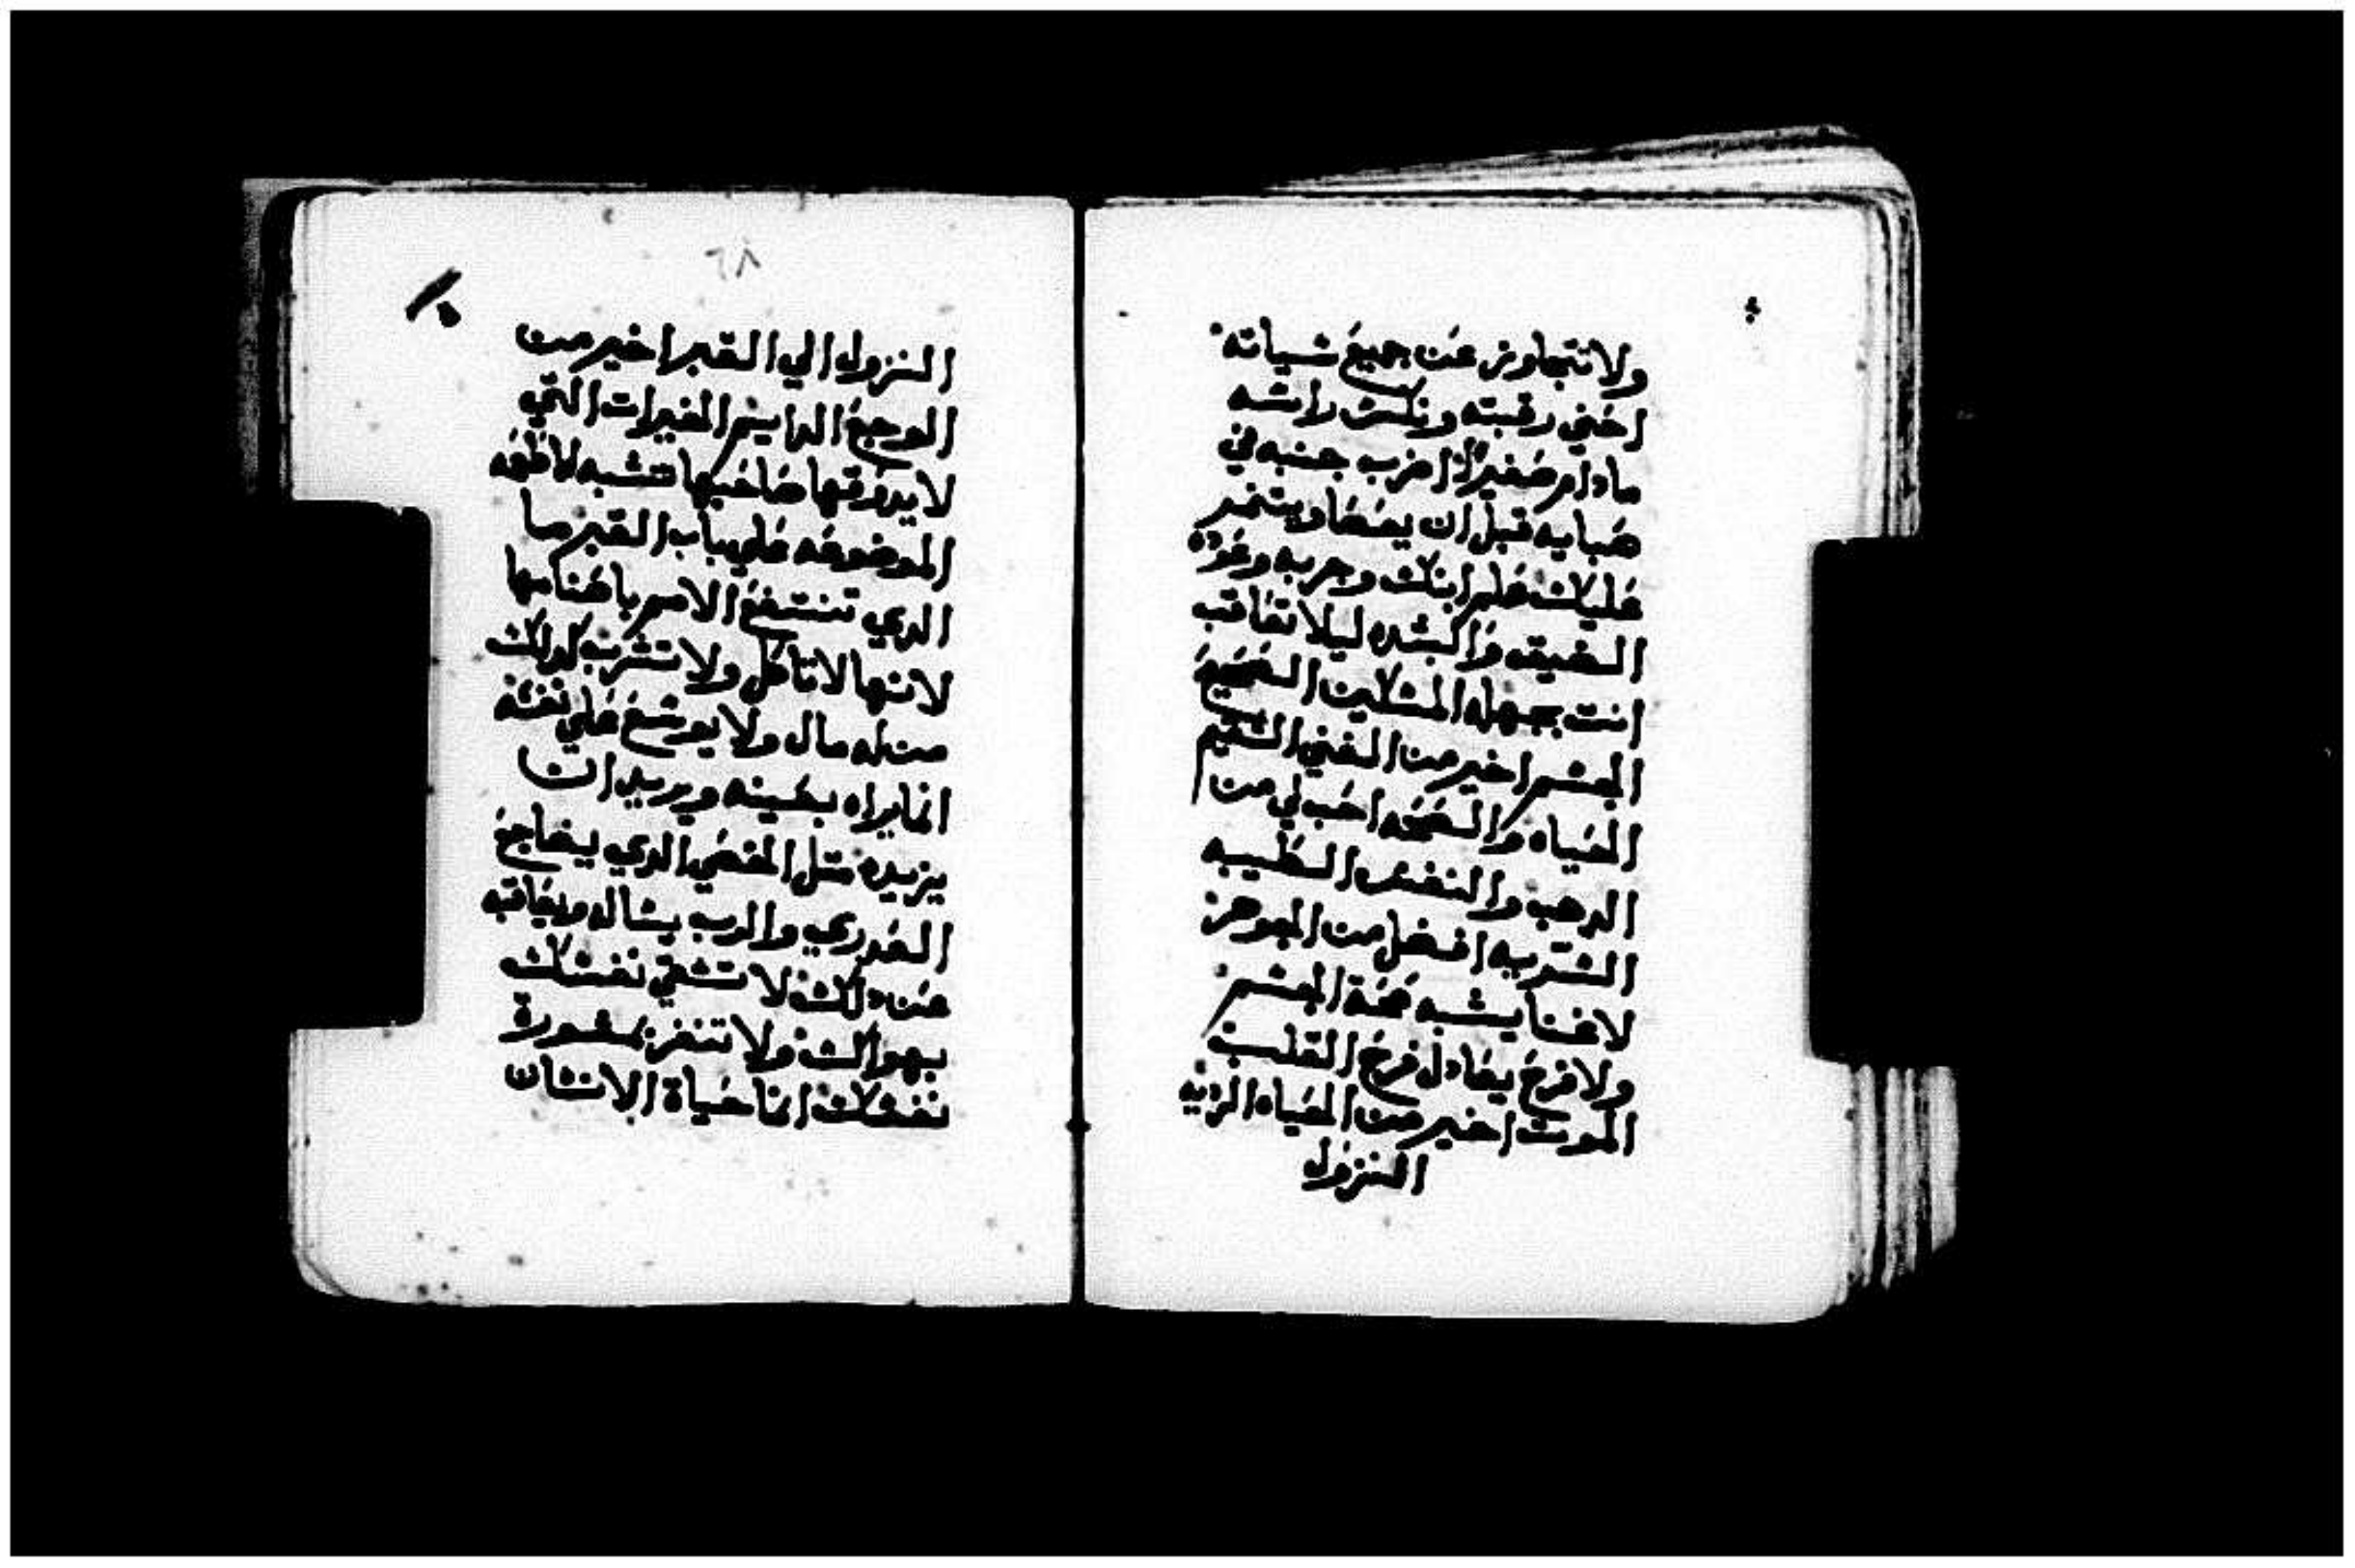 ولا تتجاوز عن جميع سياته
احني رقبته ونكس راسه
مادام صغيرًا اضرب جنبه في
صبايه قبل ان يعصا ويتنمر
عليك علم ابنك وجربه وعوده
الضيق والشده ليلا تعاقب
انت بجهله المسكين الصحيح
الجسم اخير من الغني السقيم
الحياه والصحه احب لي من
الدهب والنفس الطيبه
السريه افضل من الجوهر
لا غنا يشبه صحة الجسم
ولا فرح يعادل فرح القلب
الموت اخير من الحياه الرديه
النزول
٦٨
النزول الي القبر اخير من
الوجع الدايم الخيرات التي
لا يدوقها صاحبها تشبه لاطعه
الموضوعه علي باب القبر ما
الدي تنتفع الامم باصنامها
لانها لا تاكل ولا تشرب كدلك
من له مال ولا يوسع علي نفسه
انما يراه بعينه ويريد ان
يزيده متل الخصي الدي يضاجع
العدري والرب يساله ويعاقبه
عن دلك لا تشقي نفسك
بهواك ولا تنغر بمشورة
نفسك انما حياة الانسان